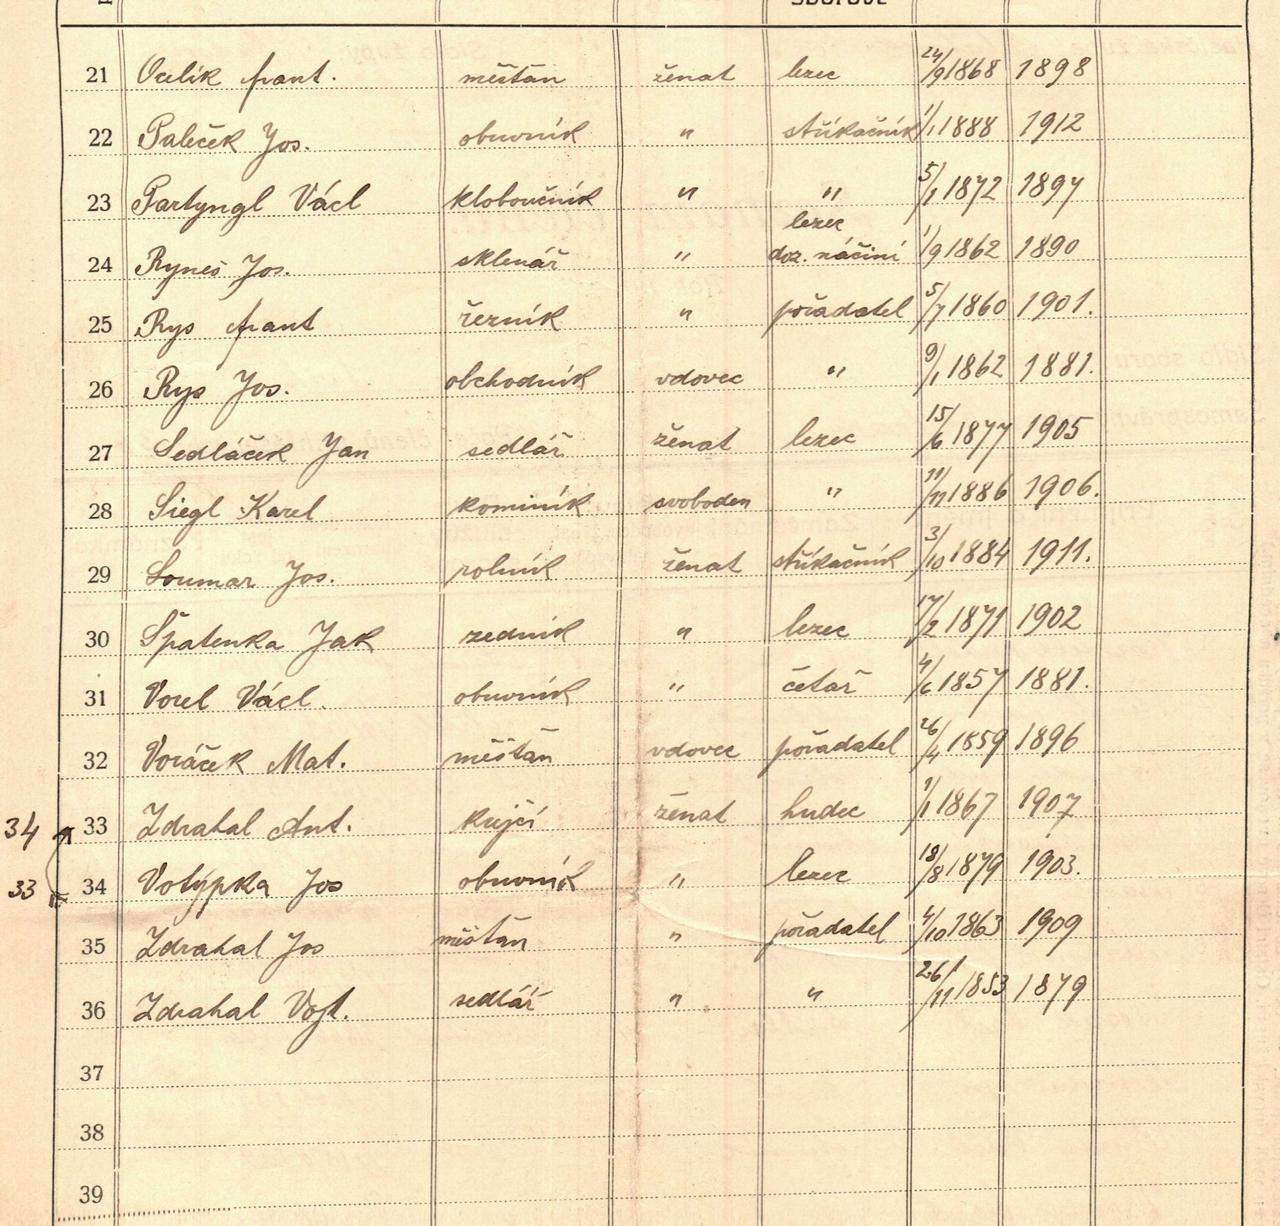 sborové
21 Ocelík Frant. měšťan ženat lezec 24/9 1868 1898
22 Paleček Jos. obuvník " stříkačník 1/1 1888 1912
23 Partyngl Václ kloboučník " " 5/1 1872 1897
lezec
24 Ryneš Jos. sklenář " doz. náčiní 1/9 1862 1890
25 Rys Frant řezník " pořadatel 5/7 1860 1901.
26 Rys Jos. obchodník vdovec " 9/1 1862 1881.
27 Sedláček Jan sedlář ženat lezec 15/6 1877 1905
28 Siegl Karel kominík svoboden " 11/11 1886 1906.
29 Soumar Jos. rolník ženat stříkačník 3/10 1884 1911.
30 Špatenka Jak zedník " lezec 17/2 1871 1902
31 Vorel Václ. obuvník " četař 4/6 1857 1881.
32 Voráček Mat. měšťan vdovec pořadatel 26/4 1859 1896
34 33 Zdrahal Ant. krejčí ženat hudec 1/1 1867 1907
33 34 Votýpka Jos obuvník " lezec 18/8 1879 1903.
35 Zdrahal Jos měšťan " pořadatel 4/10 1863 1909
36 Zdrahal Vojt. sedlář " " 26/11 1853 1879
37
38
39